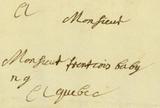 A
Monsieur
Monsieur francois baby
ng
A quebec